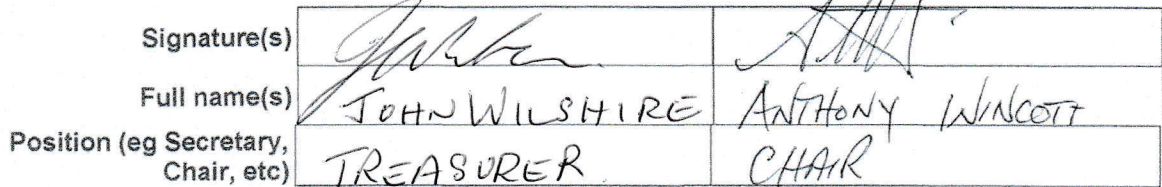 Signature(s)
Full name(s) JOHN WILSHIRE ANTHONY WINCOTT
Position (eg Secretary, Chair, etc) TREASURER CHAIR